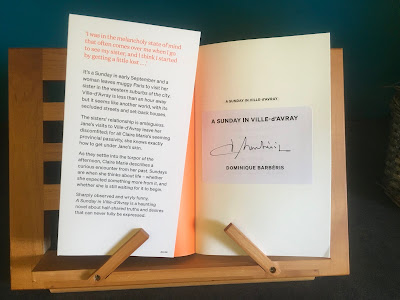 'I was in the melancholy state of mind
that often comes over me when I go
to see my sister, and I think I started
by getting a little lost . . .'
It's a Sunday in early September and a
woman leaves muggy Paris to visit her
sister in the western suburbs of the city.
Ville-d'Avray is less than an hour away
but it seems like another world, with its
secluded streets and set-back houses.
The sisters' relationship is ambiguous.
Jane's visits to Ville-d'Avray leave her
discomfited: for all Claire Marie's seeming
provincial passivity, she knows exactly
how to get under Jane's skin.
As they settle into the torpor of the
afternoon, Claire Marie describes a
curious encounter from her past. Sundays
are when she thinks about life – whether
she expected something more from it, and
whether she is still waiting for it to begin.
Sharply observed and wryly funny,
A Sunday in Ville-d'Avray is a haunting
novel about half-shared truths and desires
that can never fully be expressed.
A SUNDAY IN VILLE-d'AVRAY
A SUNDAY IN VILLE-d'AVRAY
DOMINIQUE BARBÉRIS